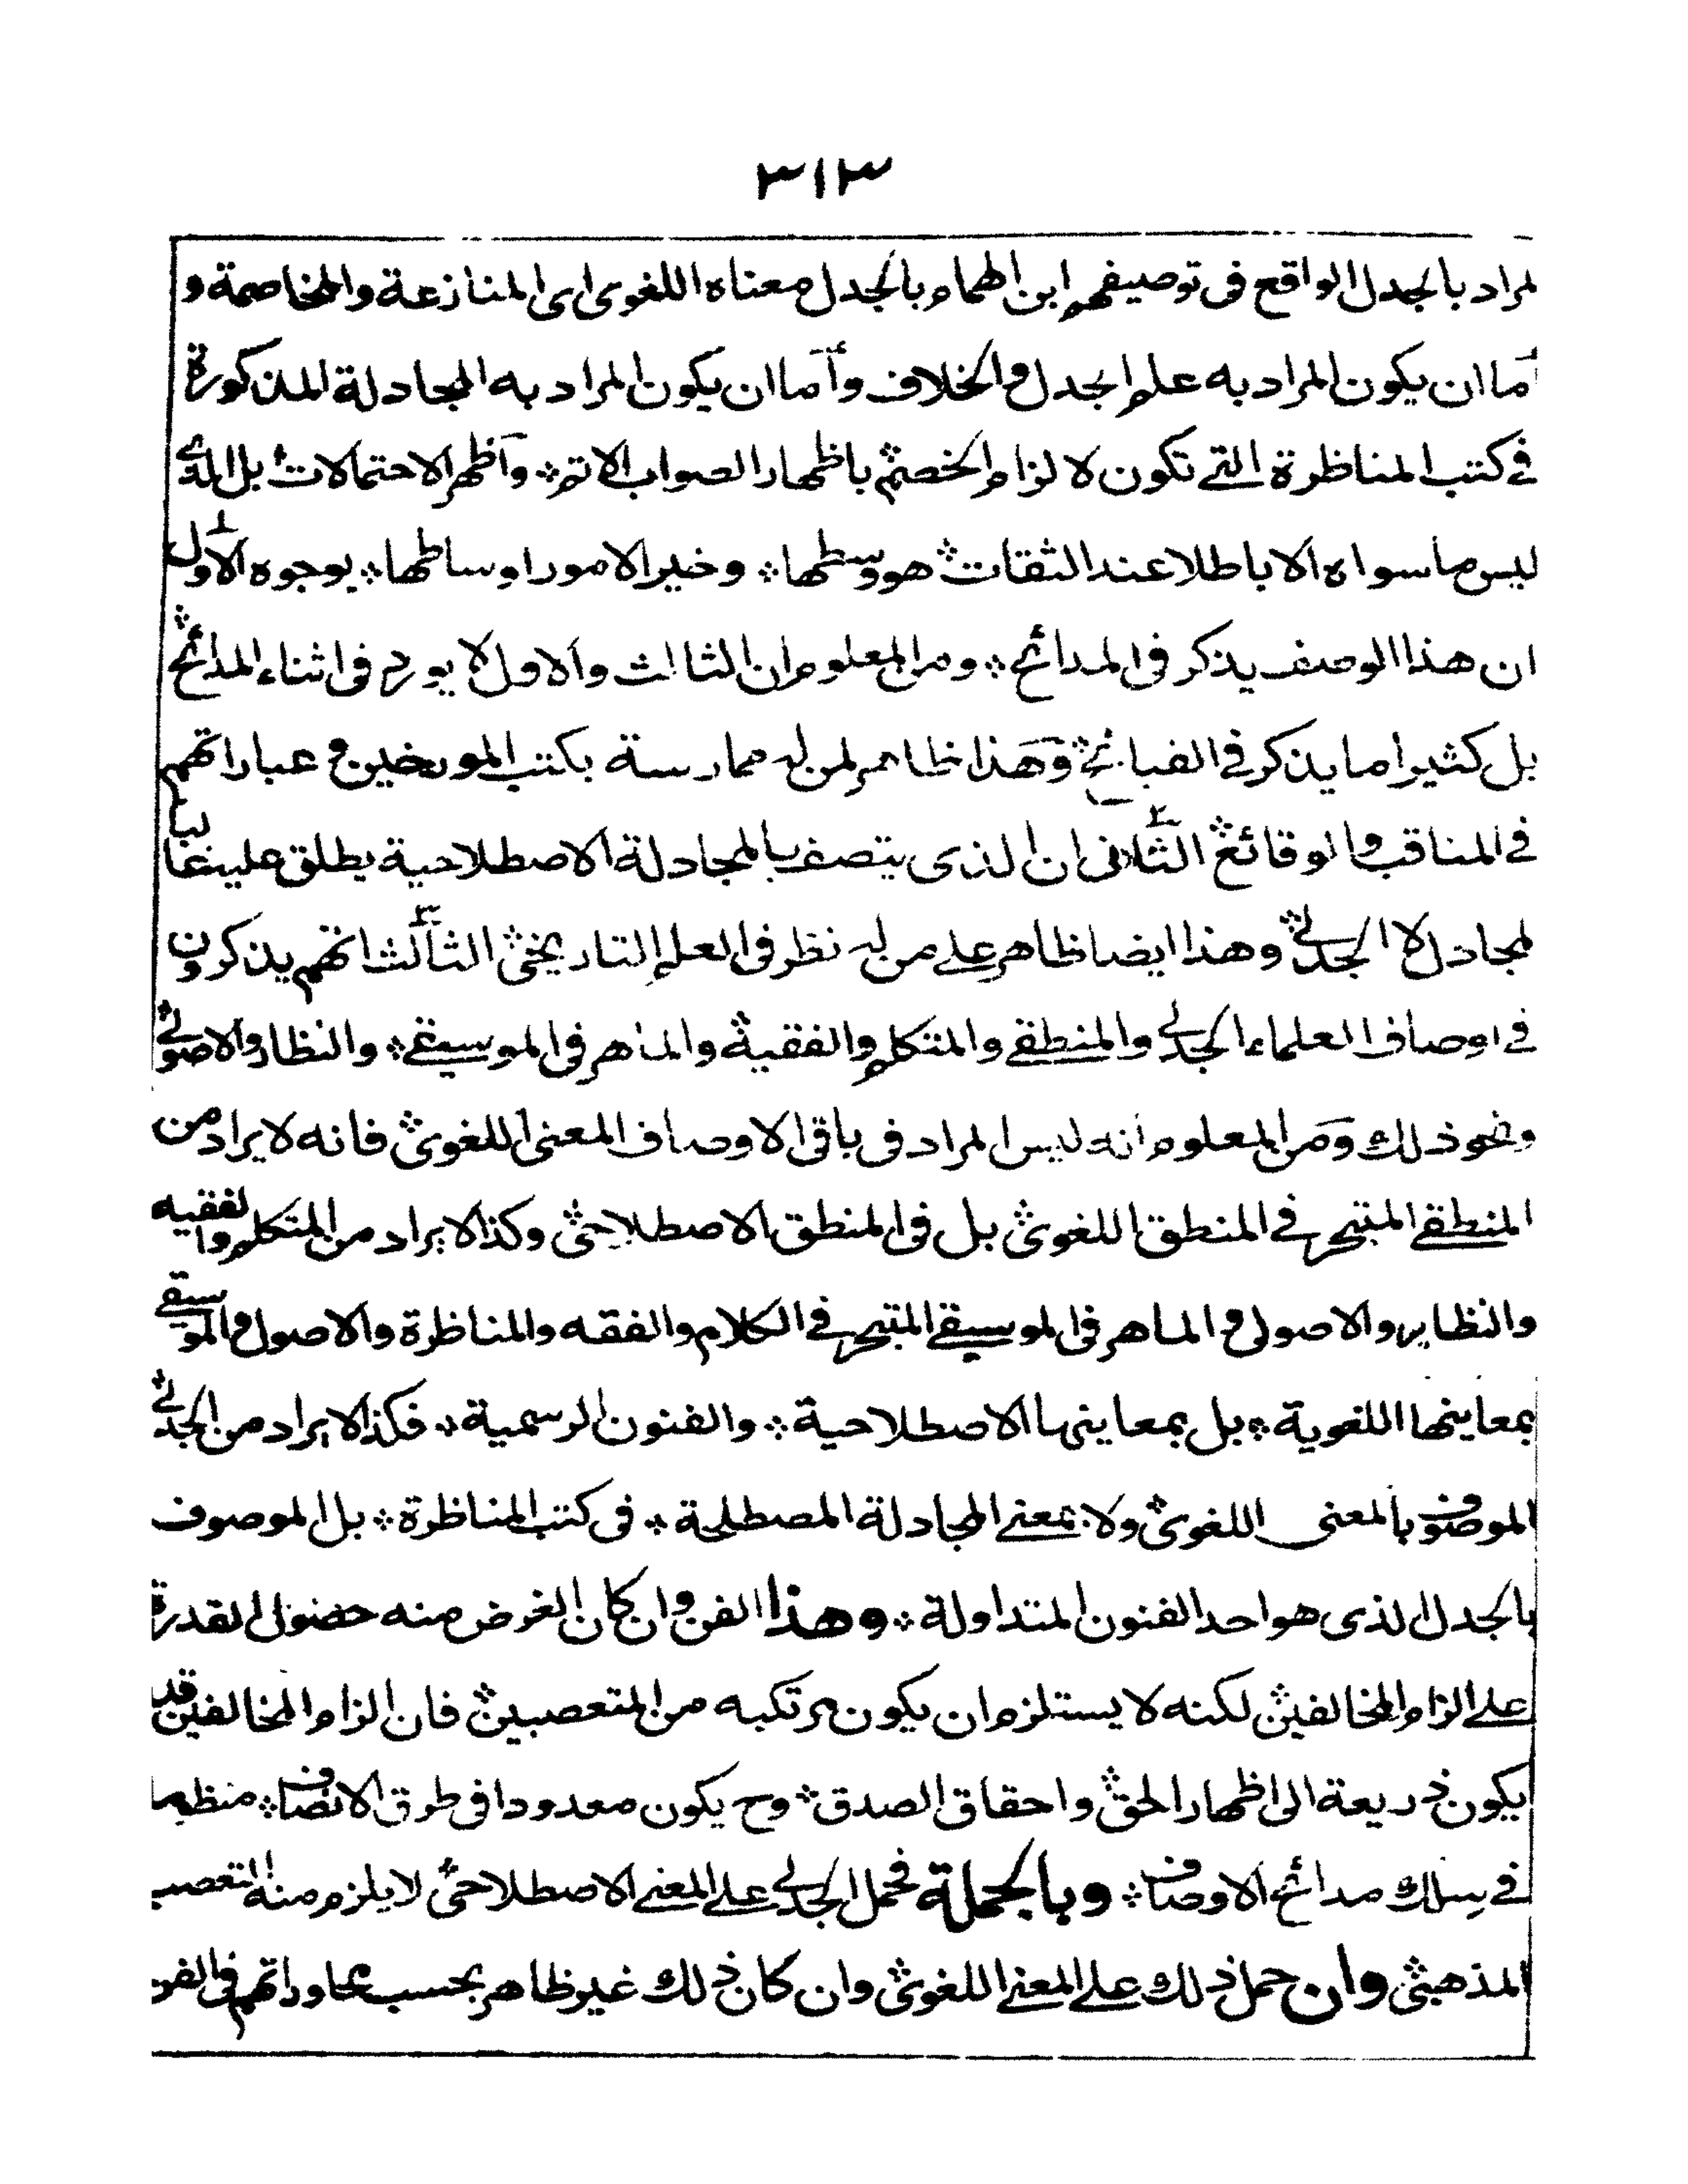 ٣١٣
لمراد بالجدل الواقع فى توصيفهم ابن الهمام بالجدل معناه اللغوى اى المنازعة والمخاصمة و
اما ان يكون المراد به علم الجدل والخلاف وأما ان يكون المراد به المجادلة المذكورة
فى كتب المناظرة التى تكون لالزام الخصم باظهار الصواب الاتم وآظهر الاحتمالات بل الذى
ليس ما سواه الا باطلا عند الثقات هو وسطها وخير الامور اوساطها بوجوه الاول
ان هذا الوصف يذكر فى المدائح ومن المعلوم ان الثالث والاول لا يورد فى اثناء المدائح
بل كثيرا ما يذكر فى القبائح وهذا ظاهر لمن له ممارسة بكتب المورخين وعباراتهم
فى المناقب والوقائع الثانى ان الذى يتصف بالمجادلة الاصطلاحية يطلق عليه غالبا
لمجادل لا الجدلى وهذا ايضا ظاهر على من له نظر فى العلم التاريخى الثالث انهم يذكرون
فى اوصاف العلماء الجدلى والمنطقى والمتكلم والفقيه والماهر فى الموسيقى والنظار والاصولى
ونحو ذلك ومن المعلوم انه ليس المراد فى باقى الاوصاف المعنى اللغوى فانه لا يراد من
المنطقى المتبحر فى المنطق اللغوى بل فى المنطق الاصطلاحى وكذا لا يراد من المتكلم والفقيه
والنظار والاصولى والماهر فى الموسيقى المتبحر فى الكلام والفقه والمناظرة والاصول والموسيقى
بمعاينها اللغوية بل بمعاينها الاصطلاحية والفنون الرسمية فكذا لا يراد من الجدلى
الموصوف بالمعنى اللغوى ولا بمعنى المجادلة المصطلحة فى كتب المناظرة بل الموصوف
بالجدل الذى هو احد الفنون المتداولة وهذا الفن وان كان الغرض منه حصول القدرة
على الزام المخالفين لكنه لا يستلزم ان يكون مرتكبه من المتعصبين فان الزام المخالفين قد
يكون ذريعة الى اظهار الحق واحقاق الصدق وح يكون معدودا فى طرق الانصاف منظما
فى سلك مدائح الاوصاف وبالجملة فحمل الجدلى على المعنى الاصطلاحى لا يلزم منه التعصب
المذهبى وان حمل ذلك على المعنى اللغوى وان كان ذلك غير ظاهر بحسب محاوراتهم فى الفن